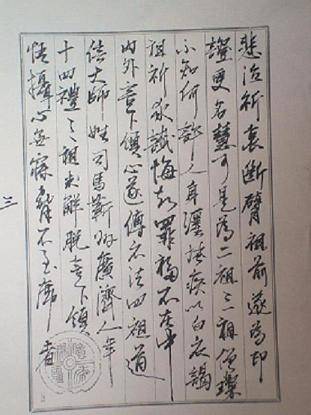 悲泣祈哀断臂祖前遂為印
證更名慧可是為二祖三祖僧璨
不知何許人身纏疾以白衣謁
祖祈求懺悔知罪福不在中
内外言下領心遂傳衣法四祖道
信大師姓司馬蘄州廣濟人年
十四禮三祖求解脱言下領
悟攝心無寐脅不至席者
三